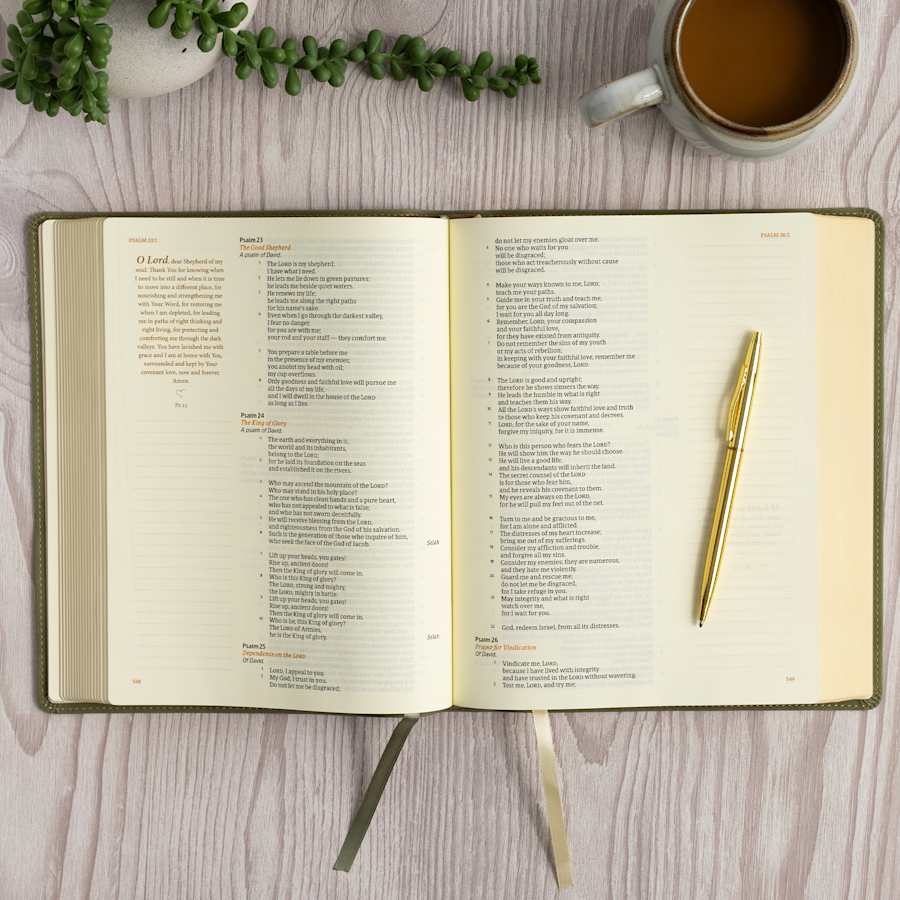 PSALM 23:1
O Lord, dear Shepherd of my
soul. Thank You for knowing when
I need to be still and when it is time
to move into a different place, for
nourishing and strengthening me
with Your Word, for restoring me
when I am depleted, for leading
me in paths of right thinking and
right living, for protecting and
comforting me through the dark
valleys. You have lavished me with
grace and I am at home with You,
surrounded and kept by Your
covenant love, now and forever.
Amen
Ps 23
Psalm 23
The Good Shepherd
A psalm of David.
1 The LORD is my shepherd;
I have what I need.
2 He lets me lie down in green pastures;
he leads me beside quiet waters.
3 He renews my life;
he leads me along the right paths
for his name's sake.
4 Even when I go through the darkest valley,
I fear no danger,
for you are with me;
your rod and your staff — they comfort me.
5 You prepare a table before me
in the presence of my enemies;
you anoint my head with oil;
my cup overflows.
6 Only goodness and faithful love will pursue me
all the days of my life,
and I will dwell in the house of the LORD
as long as I live.
Psalm 24
The King of Glory
A psalm of David.
1 The earth and everything in it,
the world and its inhabitants,
belong to the LORD;
2 for he laid its foundation on the seas
and established it on the rivers.
3 Who may ascend the mountain of the LORD?
Who may stand in his holy place?
4 The one who has clean hands and a pure heart,
who has not appealed to what is false,
and who has not sworn deceitfully.
5 He will receive blessing from the LORD,
and righteousness from the God of his salvation.
6 Such is the generation of those who inquire of him,
who seek the face of the God of Jacob. Selah
7 Lift up your heads, you gates!
Rise up, ancient doors!
Then the King of glory will come in.
8 Who is this King of glory?
The LORD, strong and mighty,
the LORD, mighty in battle.
9 Lift up your heads, you gates!
Rise up, ancient doors!
Then the King of glory will come in.
10 Who is he, this King of glory?
The LORD of Armies,
he is the King of glory. Selah
Psalm 25
Dependence on the LORD
Of David.
1 LORD, I appeal to you.
2 My God, I trust in you.
Do not let me be disgraced;
548
PSALM 26:2
do not let my enemies gloat over me.
3 No one who waits for you
will be disgraced;
those who act treacherously without cause
will be disgraced.
4 Make your ways known to me, LORD;
teach me your paths.
5 Guide me in your truth and teach me,
for you are the God of my salvation;
I wait for you all day long.
6 Remember, LORD, your compassion
and your faithful love,
for they have existed from antiquity.
7 Do not remember the sins of my youth
or my acts of rebellion;
in keeping with your faithful love, remember me
because of your goodness, LORD.
8 The LORD is good and upright;
therefore he shows sinners the way.
9 He leads the humble in what is right
and teaches them his way.
10 All the LORD's ways show faithful love and truth
to those who keep his covenant and decrees.
11 LORD, for the sake of your name,
forgive my iniquity, for it is immense.
12 Who is this person who fears the LORD?
He will show him the way he should choose.
13 He will live a good life,
and his descendants will inherit the land.
14 The secret counsel of the LORD
is for those who fear him,
and he reveals his covenant to them.
15 My eyes are always on the LORD,
for he will pull my feet out of the net.
16 Turn to me and be gracious to me,
for I am alone and afflicted.
17 The distresses of my heart increase;
bring me out of my sufferings.
18 Consider my affliction and trouble,
and forgive all my sins.
19 Consider my enemies; they are numerous,
and they hate me violently.
20 Guard me and rescue me;
do not let me be disgraced,
for I take refuge in you.
21 May integrity and what is right
watch over me,
for I wait for you.
22 God, redeem Israel, from all its distresses.
Psalm 26
Prayer for Vindication
Of David.
1 Vindicate me, LORD,
because I have lived with integrity
and have trusted in the LORD without wavering.
2 Test me, LORD, and try me;
549